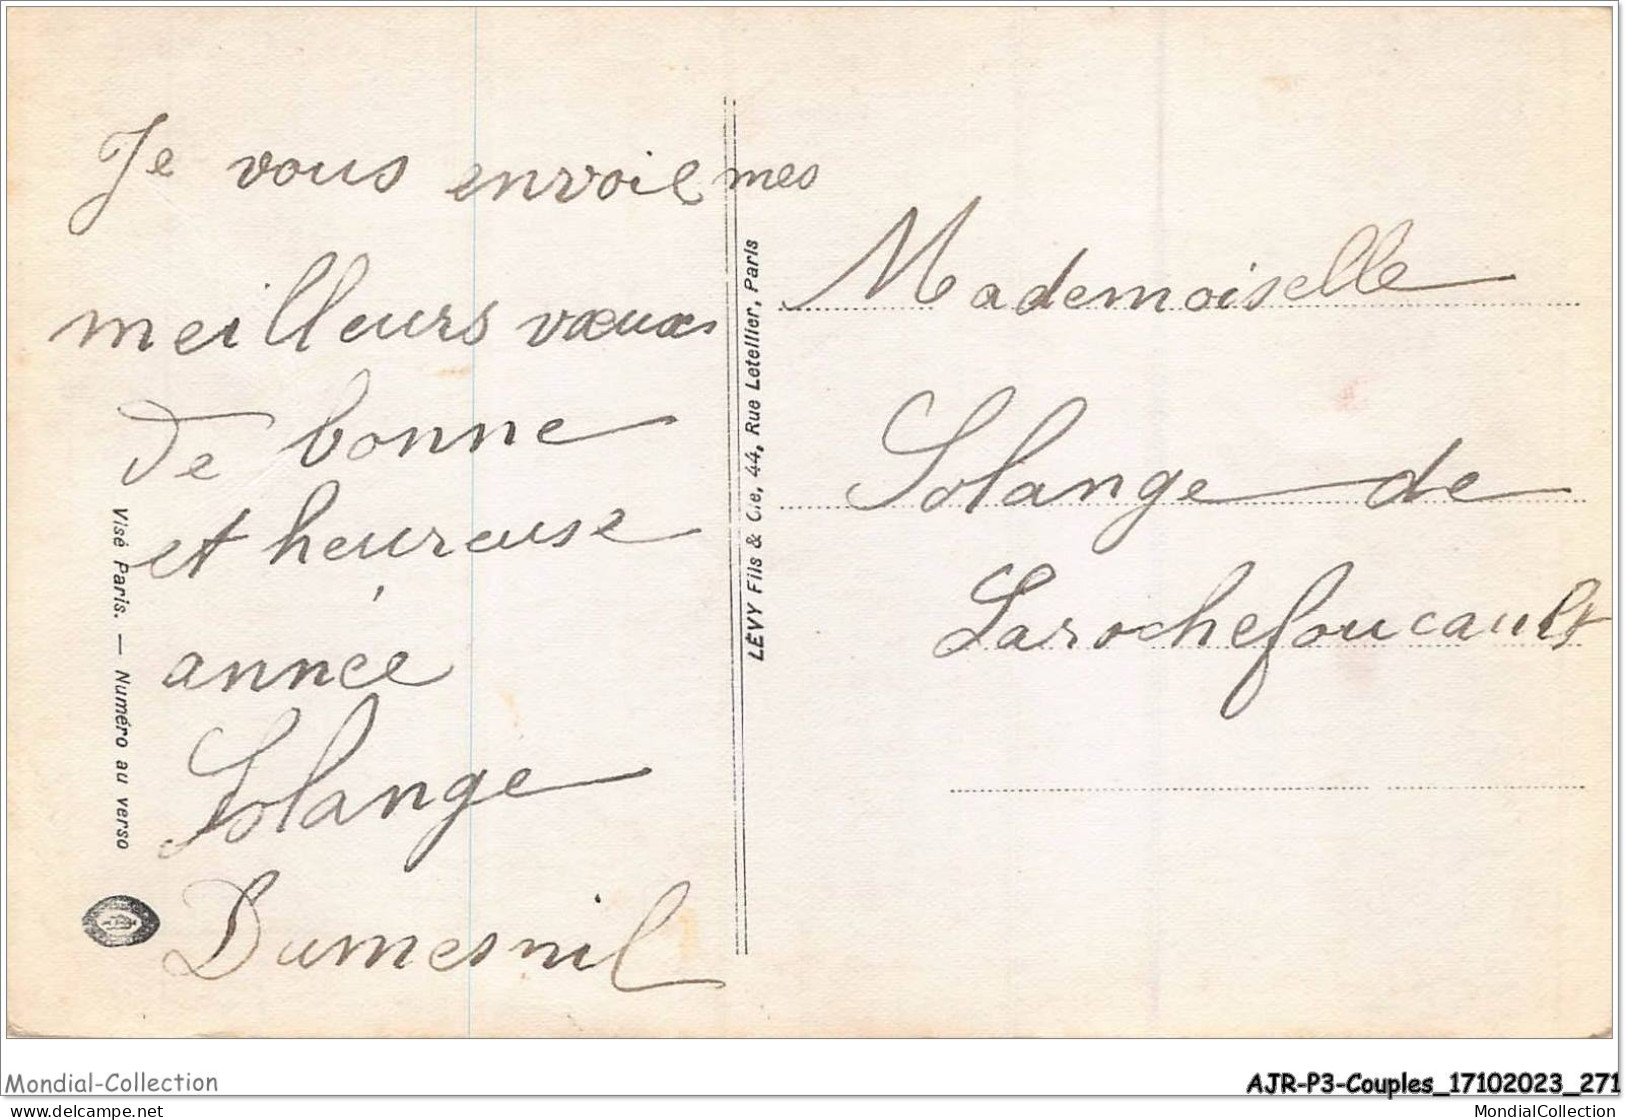 Je vous envoie mes
meilleurs vœux
de bonne
et heureuse
année
Solange
Dumesnil
Mademoiselle
Solange de
Larochefoucault
LÉVY Fils & Cie, 44, Rue Letellier, Paris
Visé Paris. — Numéro au verso
Mondial-Collection
AJR-P3-Couples_17102023_271
www.delcampe.net
MondialCollection